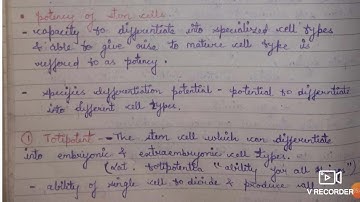 • potency of stem cells
- capacity to differentiate into specialized cell types
& able to give rise to mature cell type is
reffored to as potency.
- specifies differentiation potential - potential to differentiate
into different cell types.
① Totipotent - The stem cell which can differentiate
into embryonic & extraembryonic cell types.
"ability for all
- ability of single cell to divide & produce all
V RECORDER